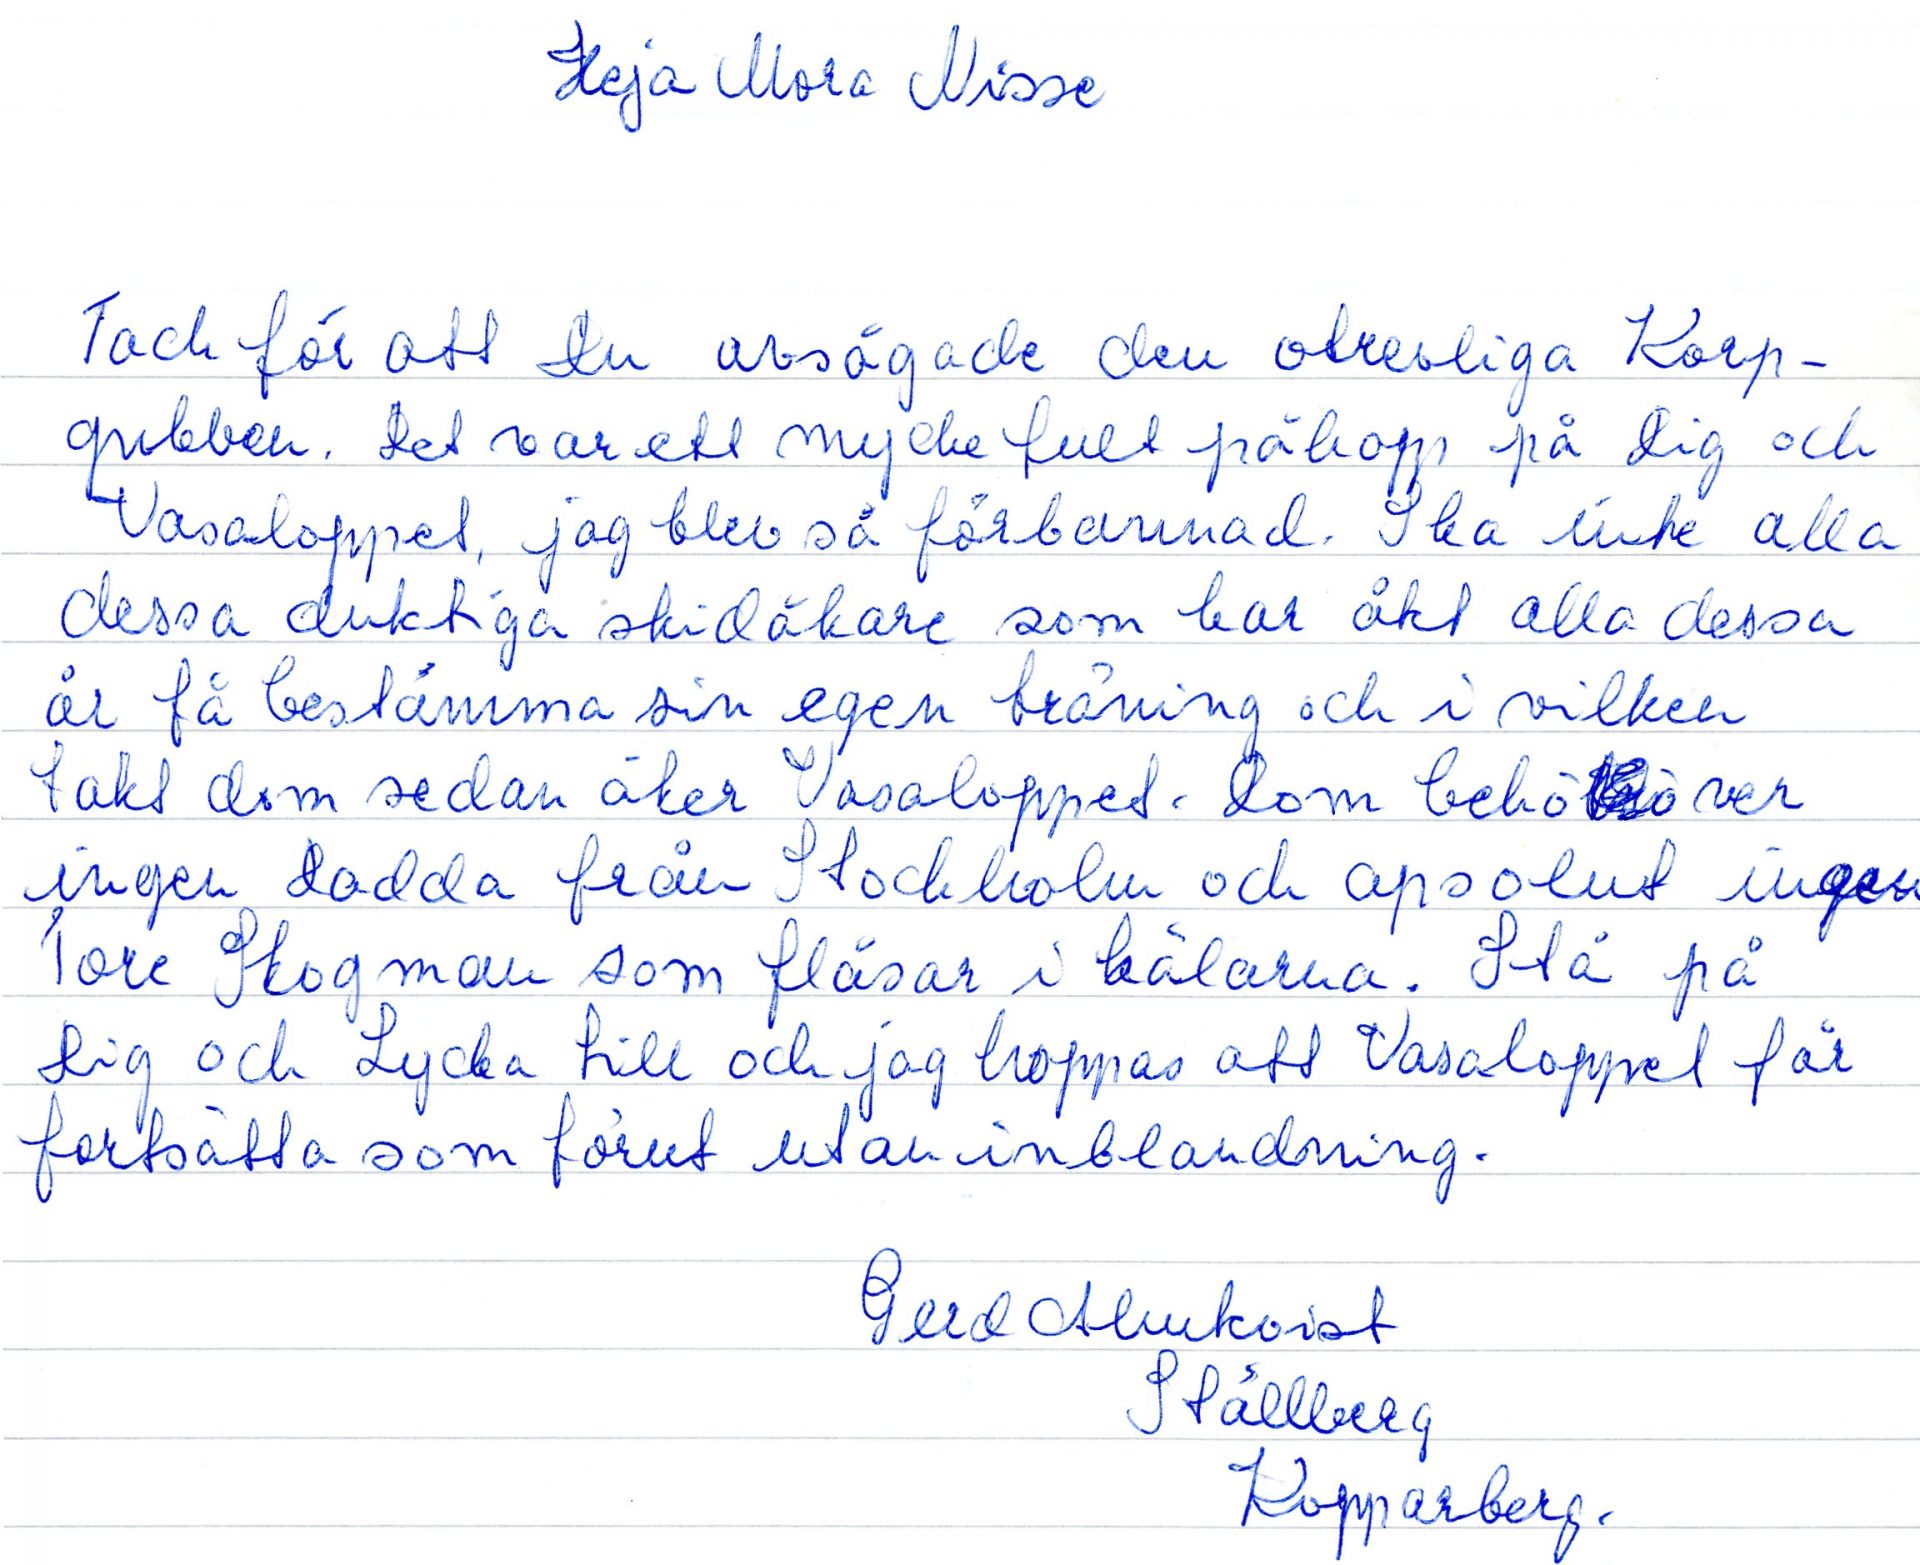 Heja Mora Nisse
Tack för att Du avsågade den otrevliga Korp-
gubben. Det var ett mycke fult påhopp på Dig och
Vasaloppet, jag blev så förbannad. Ska inte alla
dessa duktiga skidåkare som har åkt alla dessa
år få bestämma sin egen träning och i vilken
takt dom sedan åker Vasaloppet. Dom behöver
ingen Dadda från Stockholm och apsolut ingen
Tore Skogman som flåsar i hälarna. Stå på
Dig och Lycka till och jag hoppas att Vasaloppet får
fortsätta som förut utan inblandning.
Gerd Almkvist
Ställberg
Kopparberg.